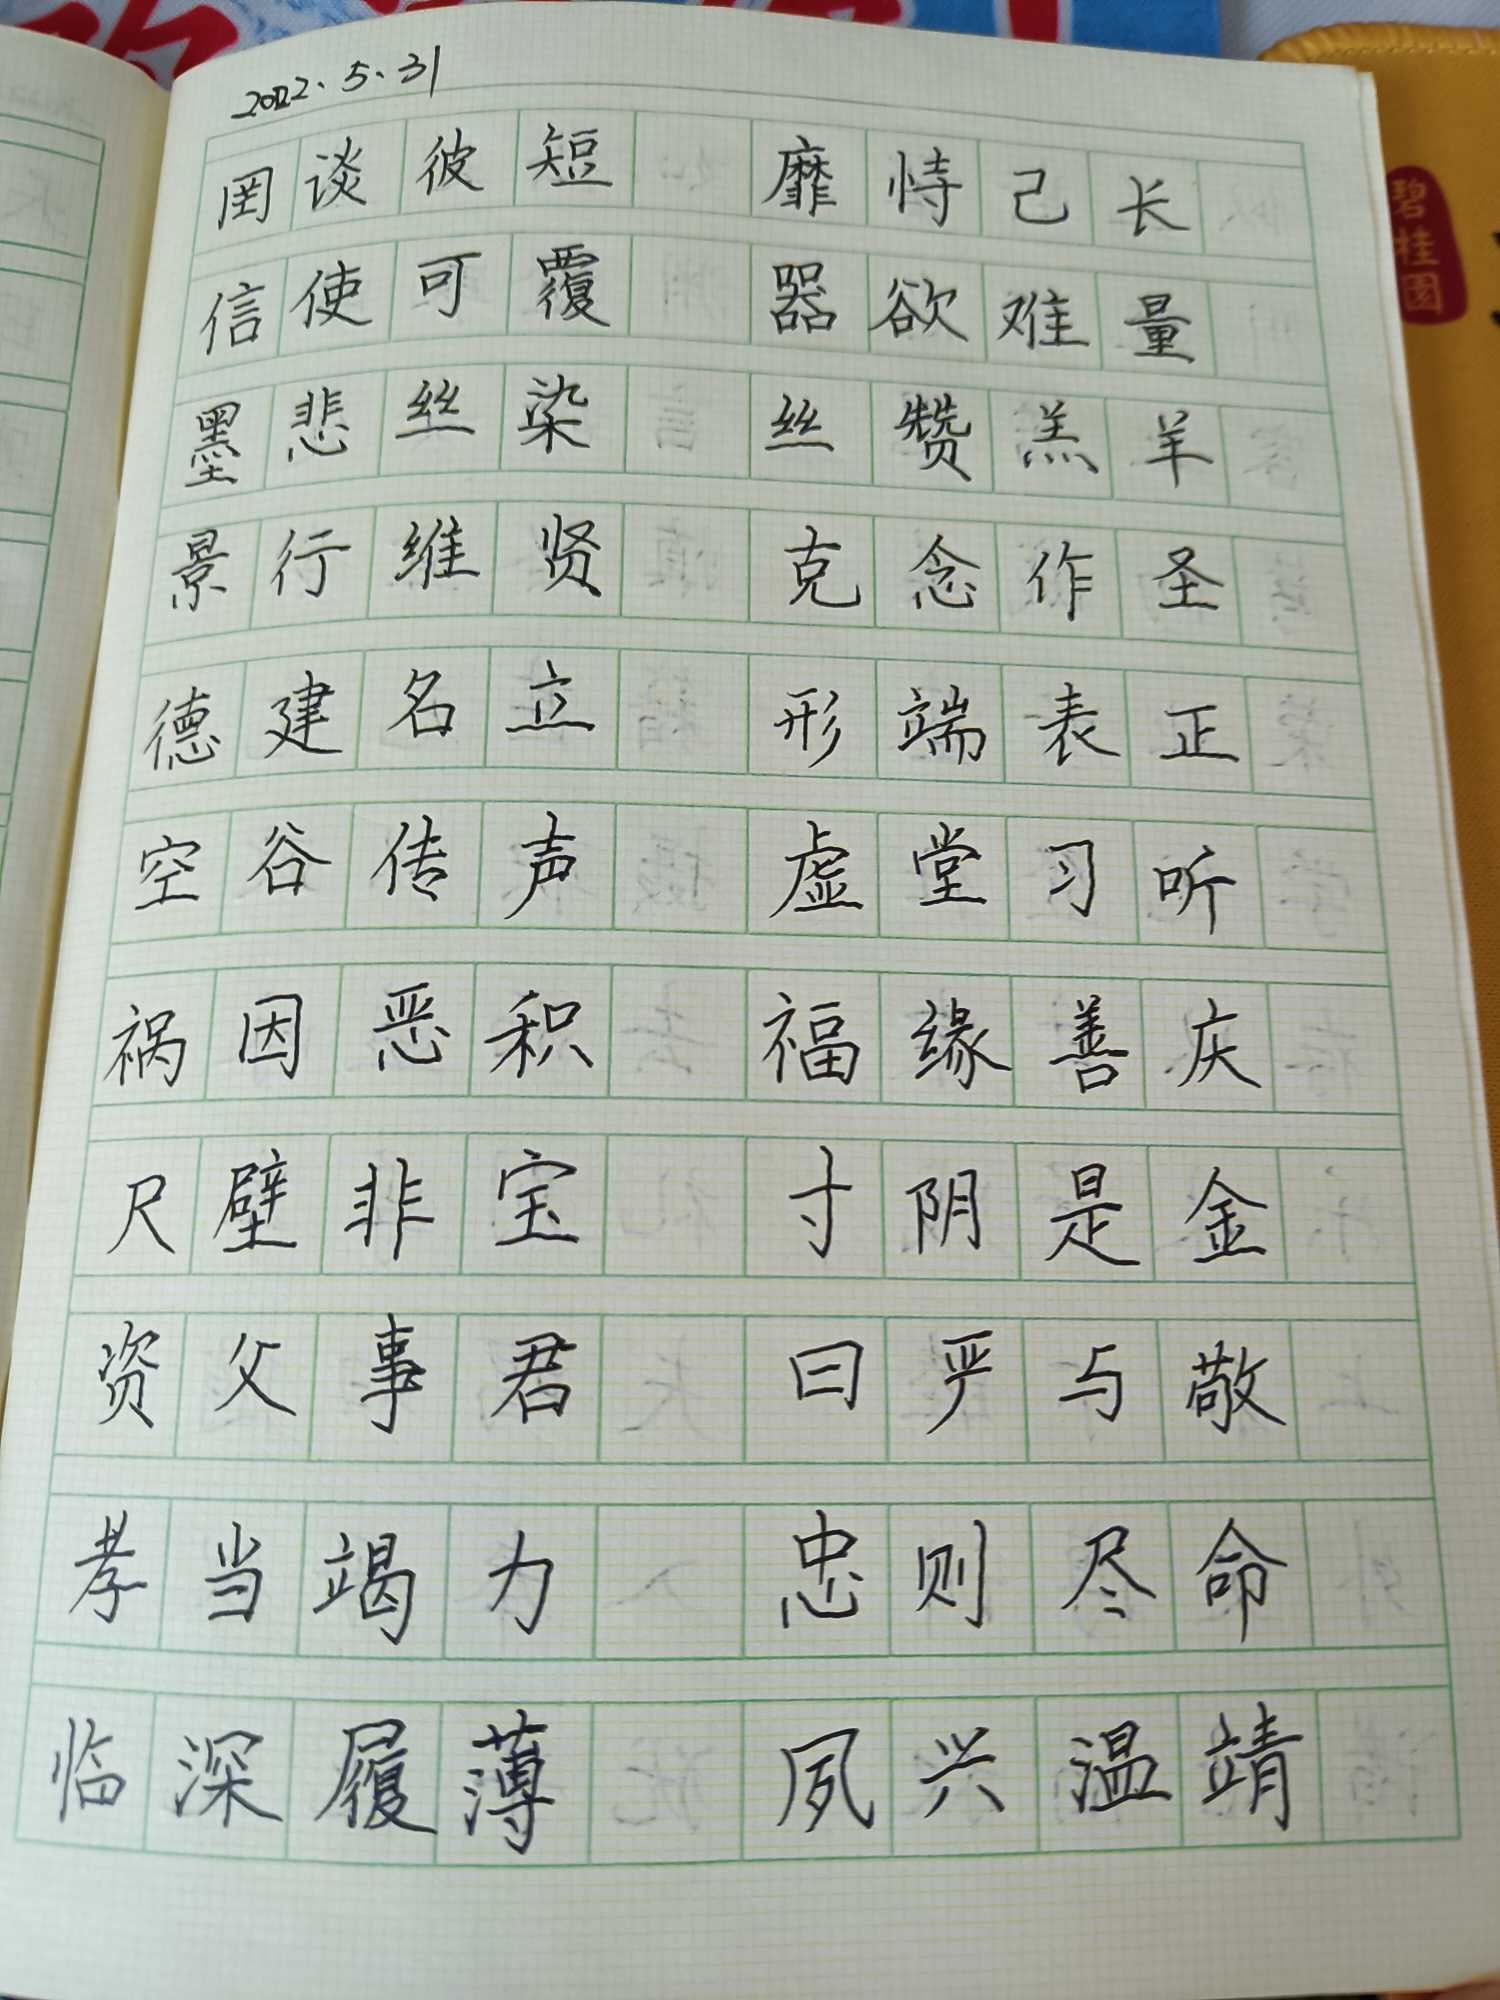 2022.5.31
罔谈彼短 靡恃己长
信使可覆 器欲难量
墨悲丝染 丝赞羔羊
景行维贤 克念作圣
德建名立 形端表正
空谷传声 虚堂习听
祸因恶积 福缘善庆
尺璧非宝 寸阴是金
资父事君 曰严与敬
孝当竭力 忠则尽命
临深履薄 夙兴温靖
碧桂园